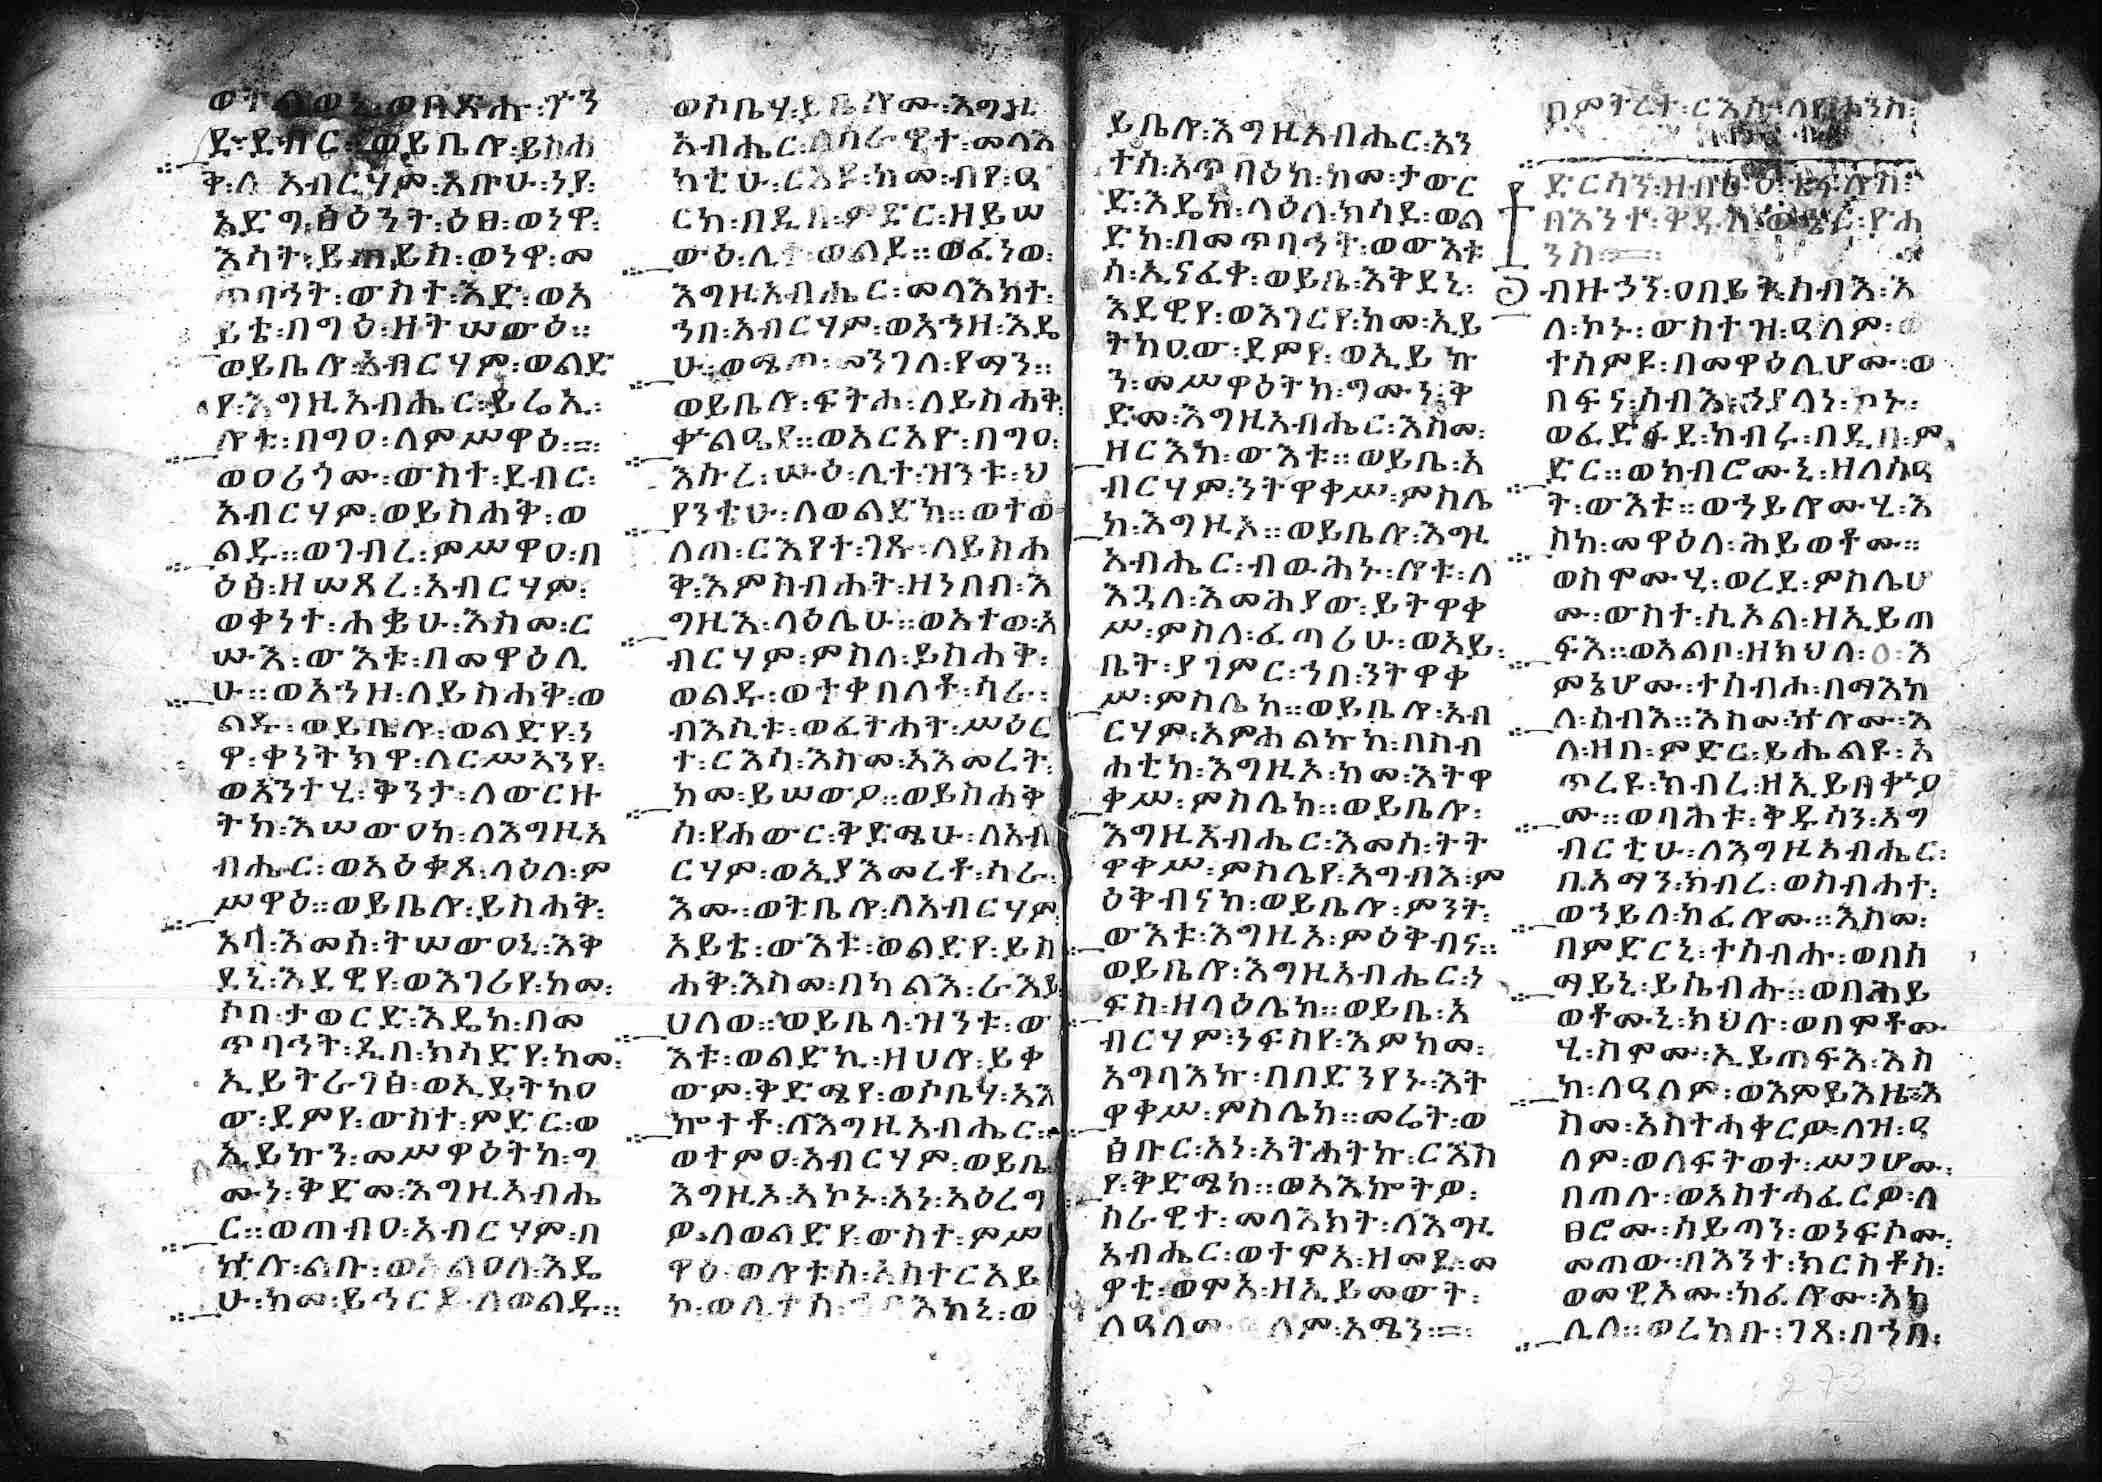 ደ፡ደብር፡ወይቤሎ፡ይስሐ
ቅ፡ለ አብርሃም፡አቡሁ፡ንየ፡
አድግ፡ፅዕንት፡ዕፀ፡ወነዋ፡
እሳት፡ይጠይስ፡ወነዋ፡መ
ጥባኅት፡ውስተ፡እድ፡ወአ
ይቴ፡በግዕ፡ዘትሠውዕ።
ወይቤሎ፡አብርሃም፡ወልድ
የ፡እግዚአብሔር፡ይሬኢ፡
ሎቱ፡በግዐ፡ለምሥዋዕ።
ወዐሪጎሙ፡ውስተ፡ደብር፡
አብርሃም፡ወይስሐቅ፡ወ
ልዱ።ወገብረ፡ምሥዋዐ፡በ
ዕፅ፡ዘሠጸረ፡አብርሃም፡
ወቀነተ፡ሐቌሁ፡እስመ፡ር
ሡእ፡ውእቱ፡በመዋዕሊ
ሁ።ወአኀዘ፡ለይስሐቅ፡ወ
ልዱ፡ወይቤሎ፡ወልድየ፡ነ
ዋ፡ቀነትክዋ፡ለርሥአንየ፡
ወአንተሂ፡ቅንታ፡ለውርዙ
ትከ፡እሠውዐከ፡ለእግዚአ
ብሔር፡ወአዕቀጾ፡ላዕለ፡ም
ሥዋዕ።ወይቤሎ፡ይስሐቅ፡
አባ፡እመሰ፡ትሠውዐኒ፡እቅ
ደኒ፡እደዊየ፡ወእገሪየ፡ከመ፡
ሶበ፡ታወርድ፡እዴከ፡በመ
ጥባኅት፡ዲበ፡ክሳድየ፡ከመ፡
ኢይትራገፅ፡ወኢይትከዐ
ው፡ደምየ፡ውስተ፡ምድር፡ወ
ኢይኩን፡መሥዋዕትከ፡ግ
ሙነ፡ቅድመ፡እግዚአብሔ
ር።ወጠብዐ፡አብርሃም፡በ
ኵሉ፡ልቡ፡ወአልዐለ፡እዴ
ሁ፡ከመ፡ይኅርድ፡ለወልዱ።
ወሶቤሃ፡ይቤሎሙ፡እግዚ
አብሔር፡ለሰራዊተ፡መላእ
ክቲሁ፡ርእዩ፡ከመ፡ብየ፡ዓ
ርከ፡በዲበ፡ምድር፡ዘይሠ
ውዕ፡ሊተ፡ወልደ።ወፈነወ፡
እግዚአብሔር፡መላእክተ፡
ኀበ፡አብርሃም፡ወአኀዘ፡እዴ
ሁ፡ወሜጦ፡መንገለ፡የማን።
ወይቤሎ፡ፍትሐ፡ለይስሐቅ፡
ቍልዔየ።ወአርአዮ፡በግዐ፡
እኩረ፡ሡዕ፡ሊተ፡ዝንቱ፡ህ
የንቴሁ፡ለወልድከ።ወተወ
ለጠ፡ርእየተ፡ገጹ፡ለይስሐ
ቅ፡እምስብሐት፡ዘኀበበ፡እ
ግዚአ፡ላዕሌሁ።ወአተወ፡አ
ብርሃም፡ምስለ፡ይስሐቅ፡
ወልዱ፡ወተቀበለቶ፡ሳራ፡
ብእሲቱ፡ወፈትሐት፡ሥዕር
ተ፡ርእሳ፡እስመ፡አእመረት፡
ከመ፡ይሠውዖ።ወይስሐቅ
ሰ፡የሐውር፡ቅድሜሁ፡ለአብ
ርሃም፡ወኢያእመረቶ፡ሳራ፡
እሙ፡ወትቤሎ፡ለአብርሃም፡
አይቴ፡ውእቱ፡ወልድየ፡ይስ
ሐቅ፡እስመ፡በካልእ፡ራእይ፡
ሀለወ።ወይቤላ፡ዝንቱ፡ው
እቱ፡ወልድኪ፡ዘሀሎ፡ይቀ
ውም፡ቅድሜየ፡ወሶቤሃ፡አእ
ኰተቶ፡ለእግዚአብሔር።
ወተምዐ፡አብርሃም፡ወይቤ
እግዚኦ፡አኮኑ፡አነ፡አዕረግ
ዎ፡ለወልድየ፡ውስተ፡ምሥ
ይቤሎ፡እግዚአብሔር፡አን
ተሰ፡አጥባዕከ፡ከመ፡ታውር
ድ፡እዴከ፡ላዕለ፡ክሳደ፡ወል
ድከ፡በመጥባኅት፡ወውእቱ
ሰ፡ኢናፈቀ፡ወይቤ፡እቅደኒ፡
እደዊየ፡ወእገርየ፡ከመ፡ኢይ
ትከዐው፡ደምየ፡ወኢይኩ
ን፡መሥዋዕትከ፡ግሙነ፡ቅ
ድመ፡እግዚአብሔር፡እስመ፡
ዘርእከ፡ውእቱ።ወይቤ፡አ
ብርሃም፡ንትዋቀሥ፡ምስሌ
ከ፡እግዚኦ።ወይቤሎ፡እግዚ
አብሔር፡ብውሕኑ፡ሎቱ፡ለ
እጓለ፡እመሕያው፡ይትዋቀ
ሥ፡ምስለ፡ፈጣሪሁ፡ወአይ፡
ቤት፡ያገምር፡ኀበ፡ንትዋቀ
ሥ፡ምስሌከ።ወይቤሎ፡አብ
ርሃም፡አምሐልኩከ፡በስብ
ሐቲከ፡እግዚኦ፡ከመ፡እትዋ
ቀሥ፡ምስሌከ።ወይቤሎ፡
እግዚአብሔር፡እመሰ፡ትት
ዋቀሥ፡ምስሌየ፡አግብእ፡ም
ዕቅብናከ፡ወይቤሎ፡ምንት፡
ውእቱ፡እግዚአ፡ምዕቅብና።
ወይቤሎ፡እግዚአብሔር፡ነ
ፍስ፡ዘላዕሌከ።ወይቤ፡አ
ብርሃም፡ነፍስየ፡እምከመ፡
አግባእኩ፡በበድንየኑ፡እት
ዋቀሥ፡ምስሌከ።መሬት፡ወ
ፀቡር፡አነ፡አትሐትኩ፡ርእስ
የ፡ቅድሜከ።ወአእኰትዎ፡
ሰራዊተ፡መላእክት፡ለእግዚ
አብሔር፡ወተሞአ፡ዘመደ፡መ
ዋቲ፡ወሞአ፡ዘኢይመውት፡
ድርሳን፡ዘብፁዕ
በእንተ፡ቅዱስ
ንስ
ብዙኃን፡ዐበይት፡ሰብእ፡እ
ለ፡ኮኑ፡ውስተ ዝ፡ዓለም፡ወ
ተሰምዩ፡በመዋዕሊሆሙ፡ወ
በፍና፡ሰብእ፡ኀያላነ፡ኮኑ፡
ድር።ወክብሮሙኒ፡ዘለሰዓ
ት፡ውእቱ።ወኀይሎሙሂ፡እ
ስከ፡መዋዕለ፡ሕይወቶሙ።
ወስሞሙሂ፡ወረደ፡ምስሌሆ
ሙ፡ውስተ፡ሲኦል፡ዘኢይጠ
ፍእ።ወአልቦ፡ዘክህለ፡ እ
ምኔሆሙ፡ተሰብሖ፡በማእከ
ለ፡ሰብእ።እስመ፡ኵሎሙ፡እ
ለ፡ዘበ፡ምድር፡ይሔልዩ፡አ
ሙ።ወባሕቱ፡ቅዱሳን፡አግ
ብርቲሁ፡ለእግዚአብሔር፡
ቢአማን፡ክብረ፡ወስብሐተ፡
ወኀይለ፡ከፈሎሙ።እስመ፡
በምድርኒ፡ተሰብሑ፡ወበሰ
ማይኒ፡ይሴብሑ።ወበሕይ
ወቶሙኒ፡ክህሉ፡ወበሞቶሙ
ሂ፡ስሞሙ፡ኢይጠፍእ፡እስ
ከ፡ለዓለም፡ወእምይእዜ፡እ
ስመ፡አስተሓቀርዎ፡ለዝ፡ዓ
ለም፡ወለፍትወተ፡ሥጋሆሙ፡
በጠሉ፡ወአስተሓፈርዎ፡ለ
ፀሮሙ፡ሰይጣን፡ወነፍሶሙ፡
መጠው፡በእንተ፡ክርስቶስ፡
ወመዊኦሙ፡ከፈሎሙ፡አክ
ሊለ።ወረከቡ፡ገጸ፡በኀበ፡